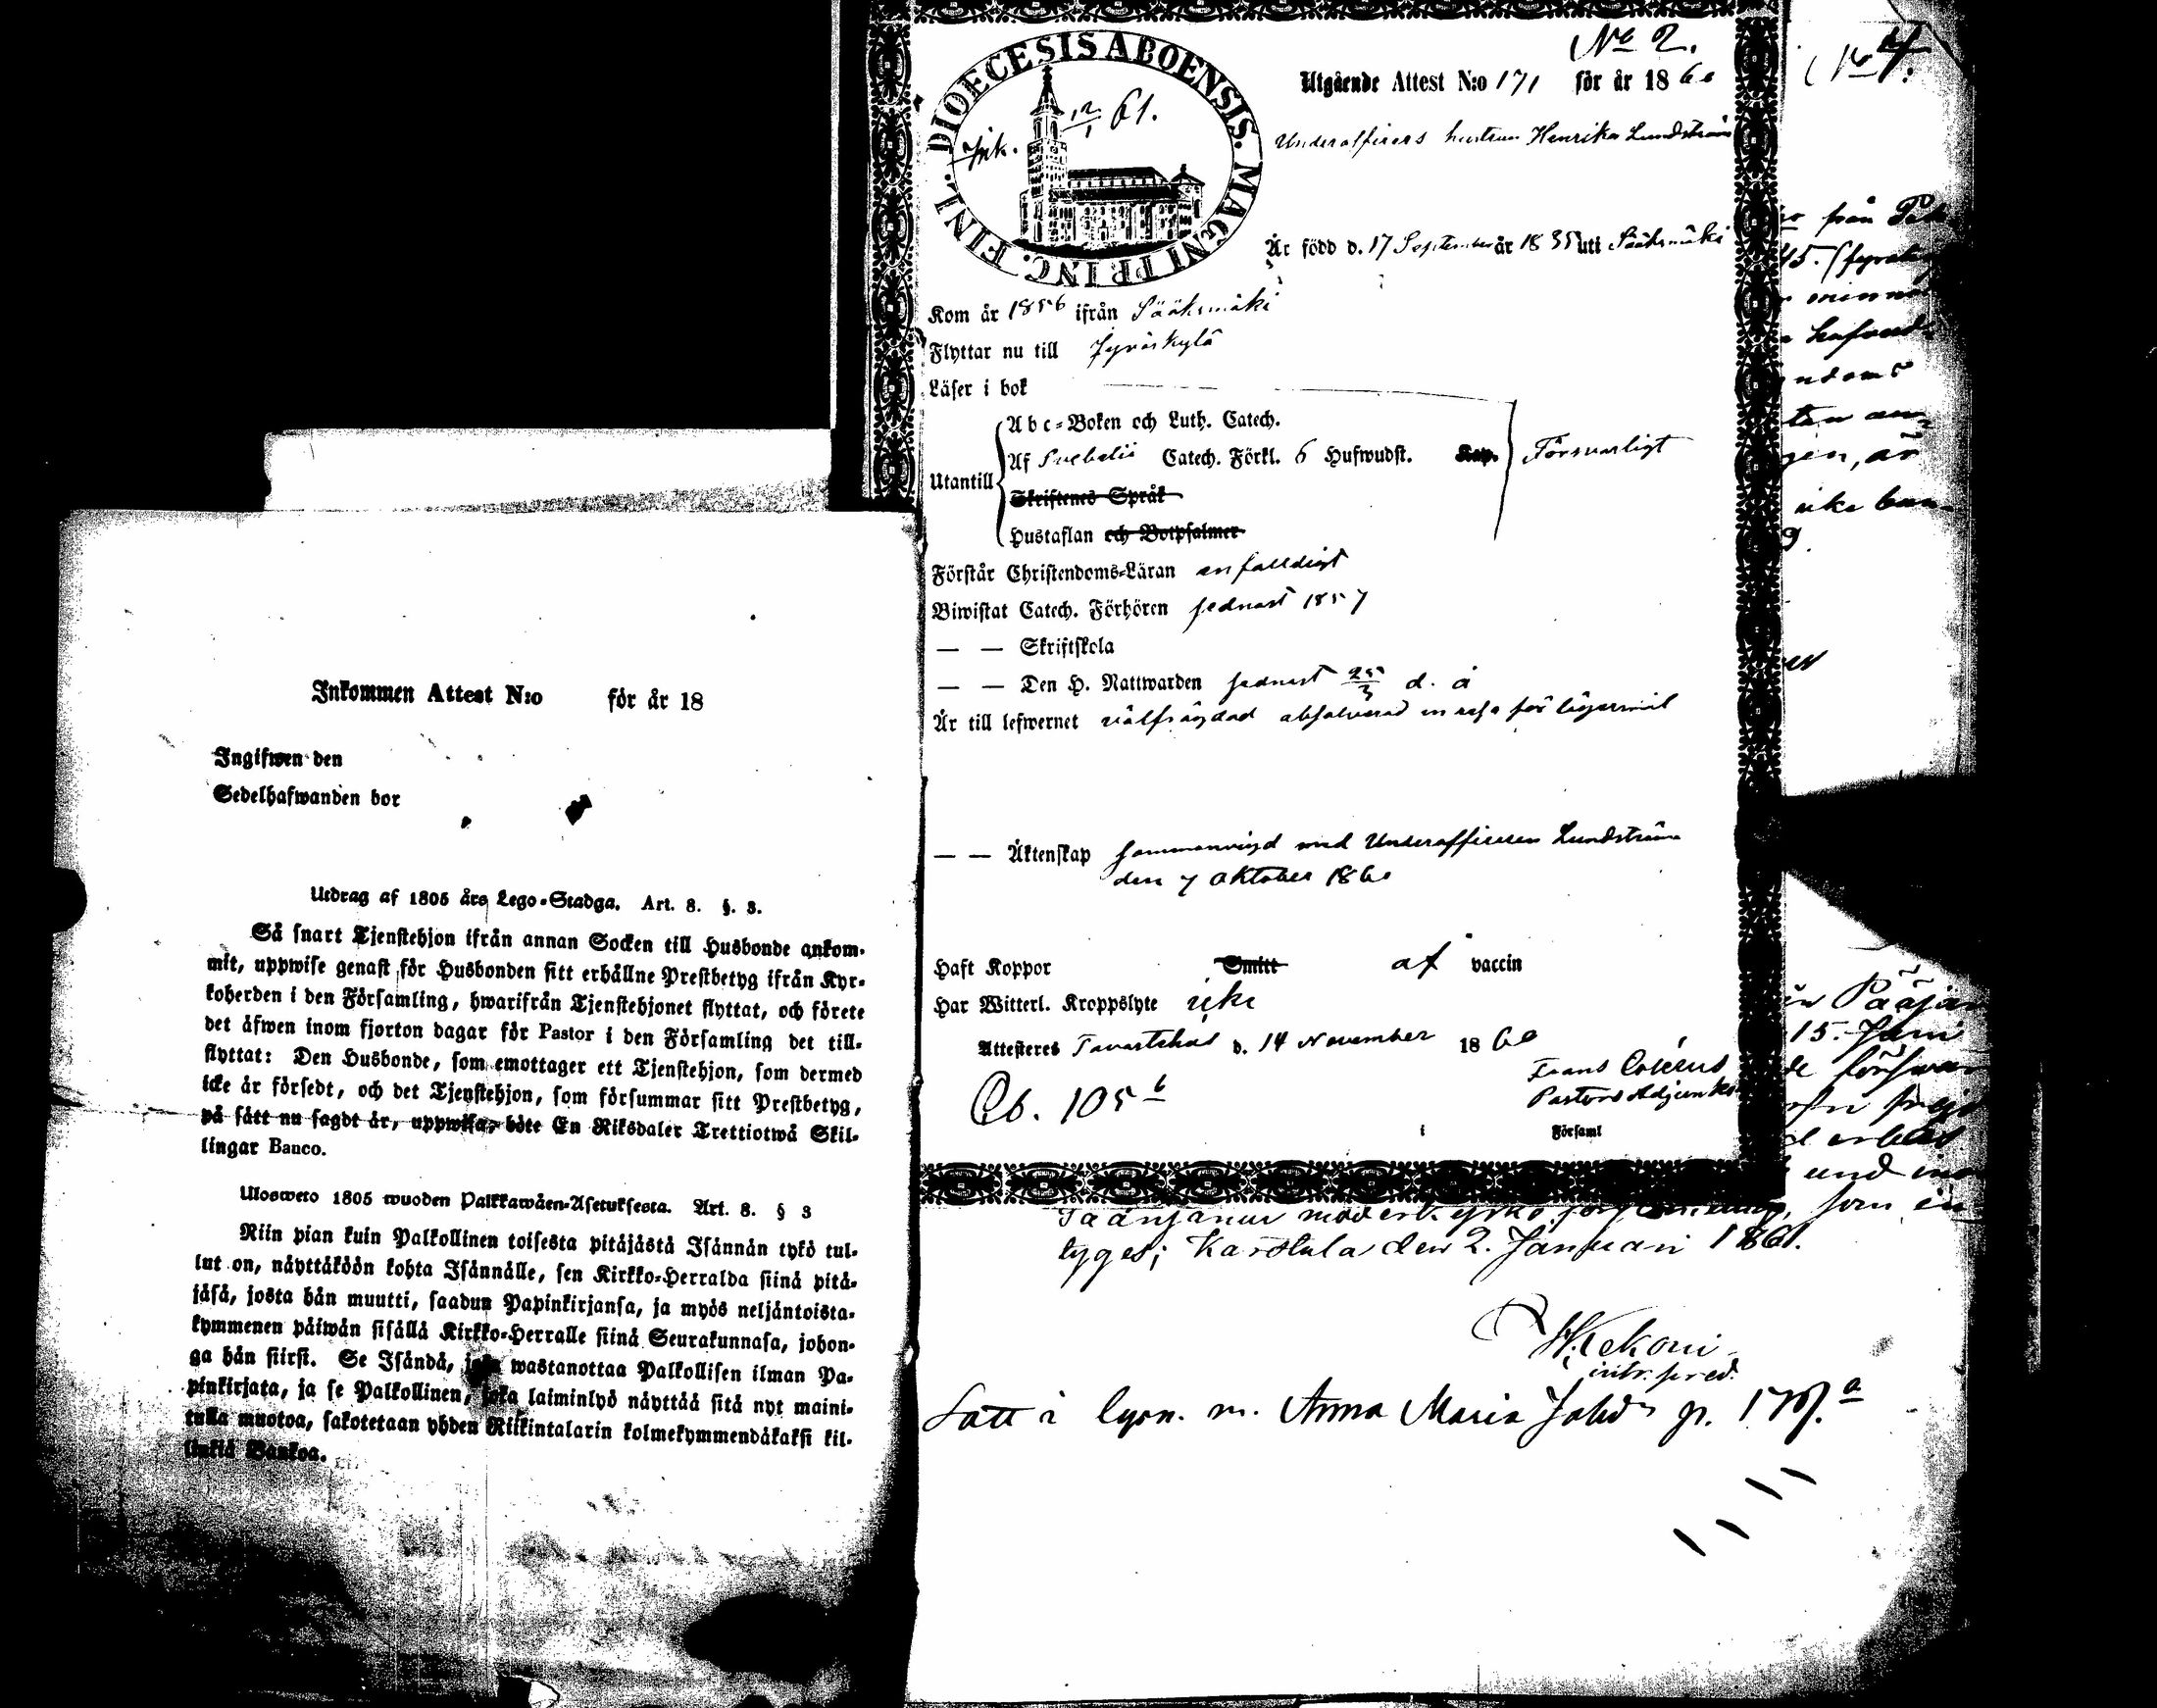 Inkommen Attest N:o för år 18
Ingifwen den
Sedelhafwanden bor
Utdrag af 1805 års Lego-Stadga. Art. 8. §. 3.
Så snart Tjenstehjon ifrån annan Socken till Husbonde ankom-
mit, uppwise genast för Husbonden sitt erhållne Prestbetyg ifrån Kyr-
koherden i den Församling, hwarifrån Tjenstehjonet flyttat, och förete
det äfwen inom fjorton dagar för Pastor i den Församling det till-
flyttat: Den Husbonde, som emottager ett Tjenstehjon, som dermed
icke är försedt, och det Tjenstehjon, som försummar sitt Prestbetyg,
på sätt nu sagdt är, uppwisa, böte En Riksdaler Trettiotwå Skil-
lingar Banco.
Ulosweto 1805 wuoden Palkkawäen-Asetuksesta. Art. 8. § 3
Niin pian kuin Palkollinen toisesta pitäjästä Isännän tykö tul-
lut on, näyttäköön kohta Isännälle, sen Kirkko-Herralda siinä pitä-
jäsä, josta hän muutti, saadun Papinkirjansa, ja myös neljäntoista-
kymmenen päiwän sisällä Kirkko-Herralle siinä Seurakunnasa, johon-
ga hän siirsi. Se Isändä, joka wastanottaa Palkollisen ilman Pa-
pinkirjata, ja se Palkollinen, joka laiminlyö näyttää sitä nyt maini-
tulla muotoa, sakotetaan yhden Riikintalarin kolmekymmendäkaksi kil-
linkiä Bankoa.
DIOECESIS ABOENSIS. MAGNI PRINC. FINL.
Ink. 12/1 61.
No 2.
Utgående Attest N:o 171 för år 1860
Underofficers hustrun Henrika Lundström
Är född d. 17 September år 1835 uti Sääksmäki
Kom år 1856 ifrån Sääksmäki
Flyttar nu till Jyväskylä
Läser i bok
Utantill
Abc-Boken och Luth. Catech.
Af Svebelii Catech. Förkl. 6 Hufwudst. Kap. Försvarligt
Skriftenes Språk
Hustaflan och Botpsalmer
Förstår Christendoms-Läran enfalldigt
Biwistat Catech. Förhören sednast 1857
— — Skriftskola
— — Den H. Nattwarden sednast 25/3 d. å
Är till lefwernet välfrägdad absolverad en resa för lägersmål
— — Äktenskap sammanvigd med Underofficeren Lundström
den 7 Oktober 1860
Haft Koppor Smitt af vaccin
Har Witterl. Kroppslyte icke
Attesteres Tavastehus d. 14 November 1860
Frans
Pastors Adjunkt
Cb. 105 b
i Församl
No 4.
från
45.
minne
gen, är
icke
Pääjär
15. Juni
erhållit
und
som
tyges; Karstula den 2. Januari 1861.
Kekoni
intr. pred.
Satt i lysn. m. Anna Maria Johds p. 178. a